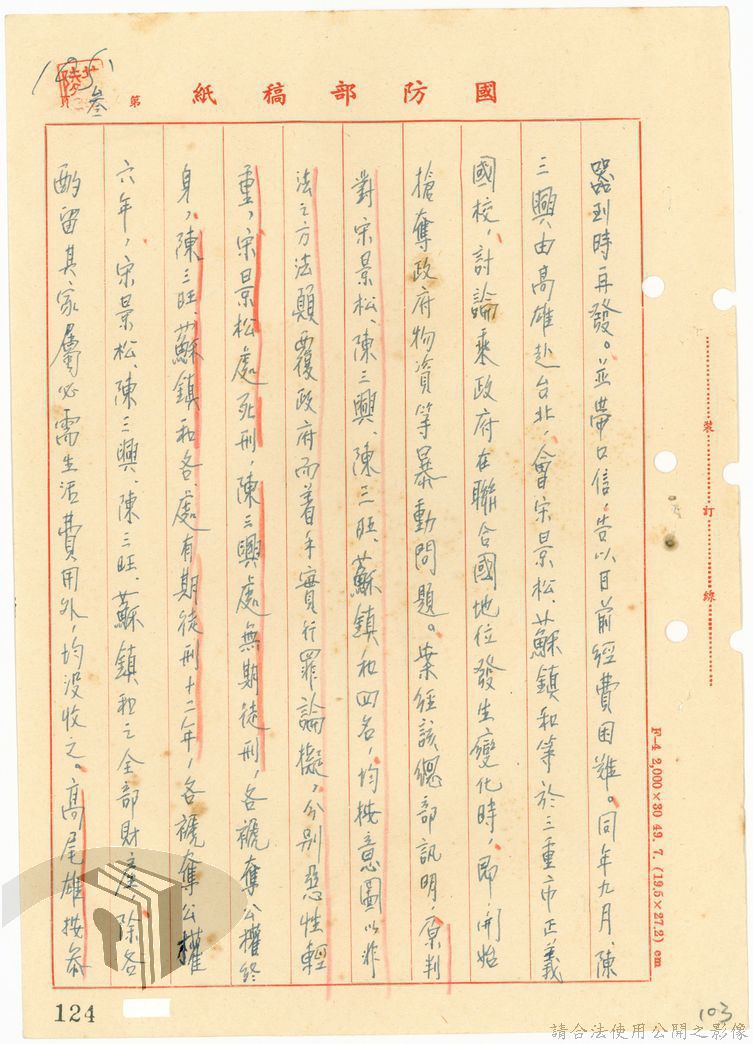 國防部稿紙
第
叁
頁
裝訂線
F-4 2,000×30 49. 7. (19.5×27.2) cm
器到時再發。並帶口信，告以目前經費困難。同年九月，陳
三興由高雄赴台北，會宋景松、蘇鎮和等於三重市正義
國校，討論乘政府在聯合國地位發生變化時，即開始
搶奪政府物資等暴動問題。案經該總部訊明，原判
對宋景松、陳三興、陳三旺、蘇鎮和四名，均按意圖以非
法之方法顛覆政府而着手實行罪論擬，分別惡性輕
重，宋景松處死刑，陳三興處無期徒刑，各褫奪公權終
身，陳三旺、蘇鎮和各處有期徒刑十二年，各褫奪公權
六年，宋景松、陳三興、陳三旺、蘇鎮和之全部財產，除各
酌留其家屬必需生活費用外，均沒收之。高尾雄按參
124
103
請合法使用公開之影像